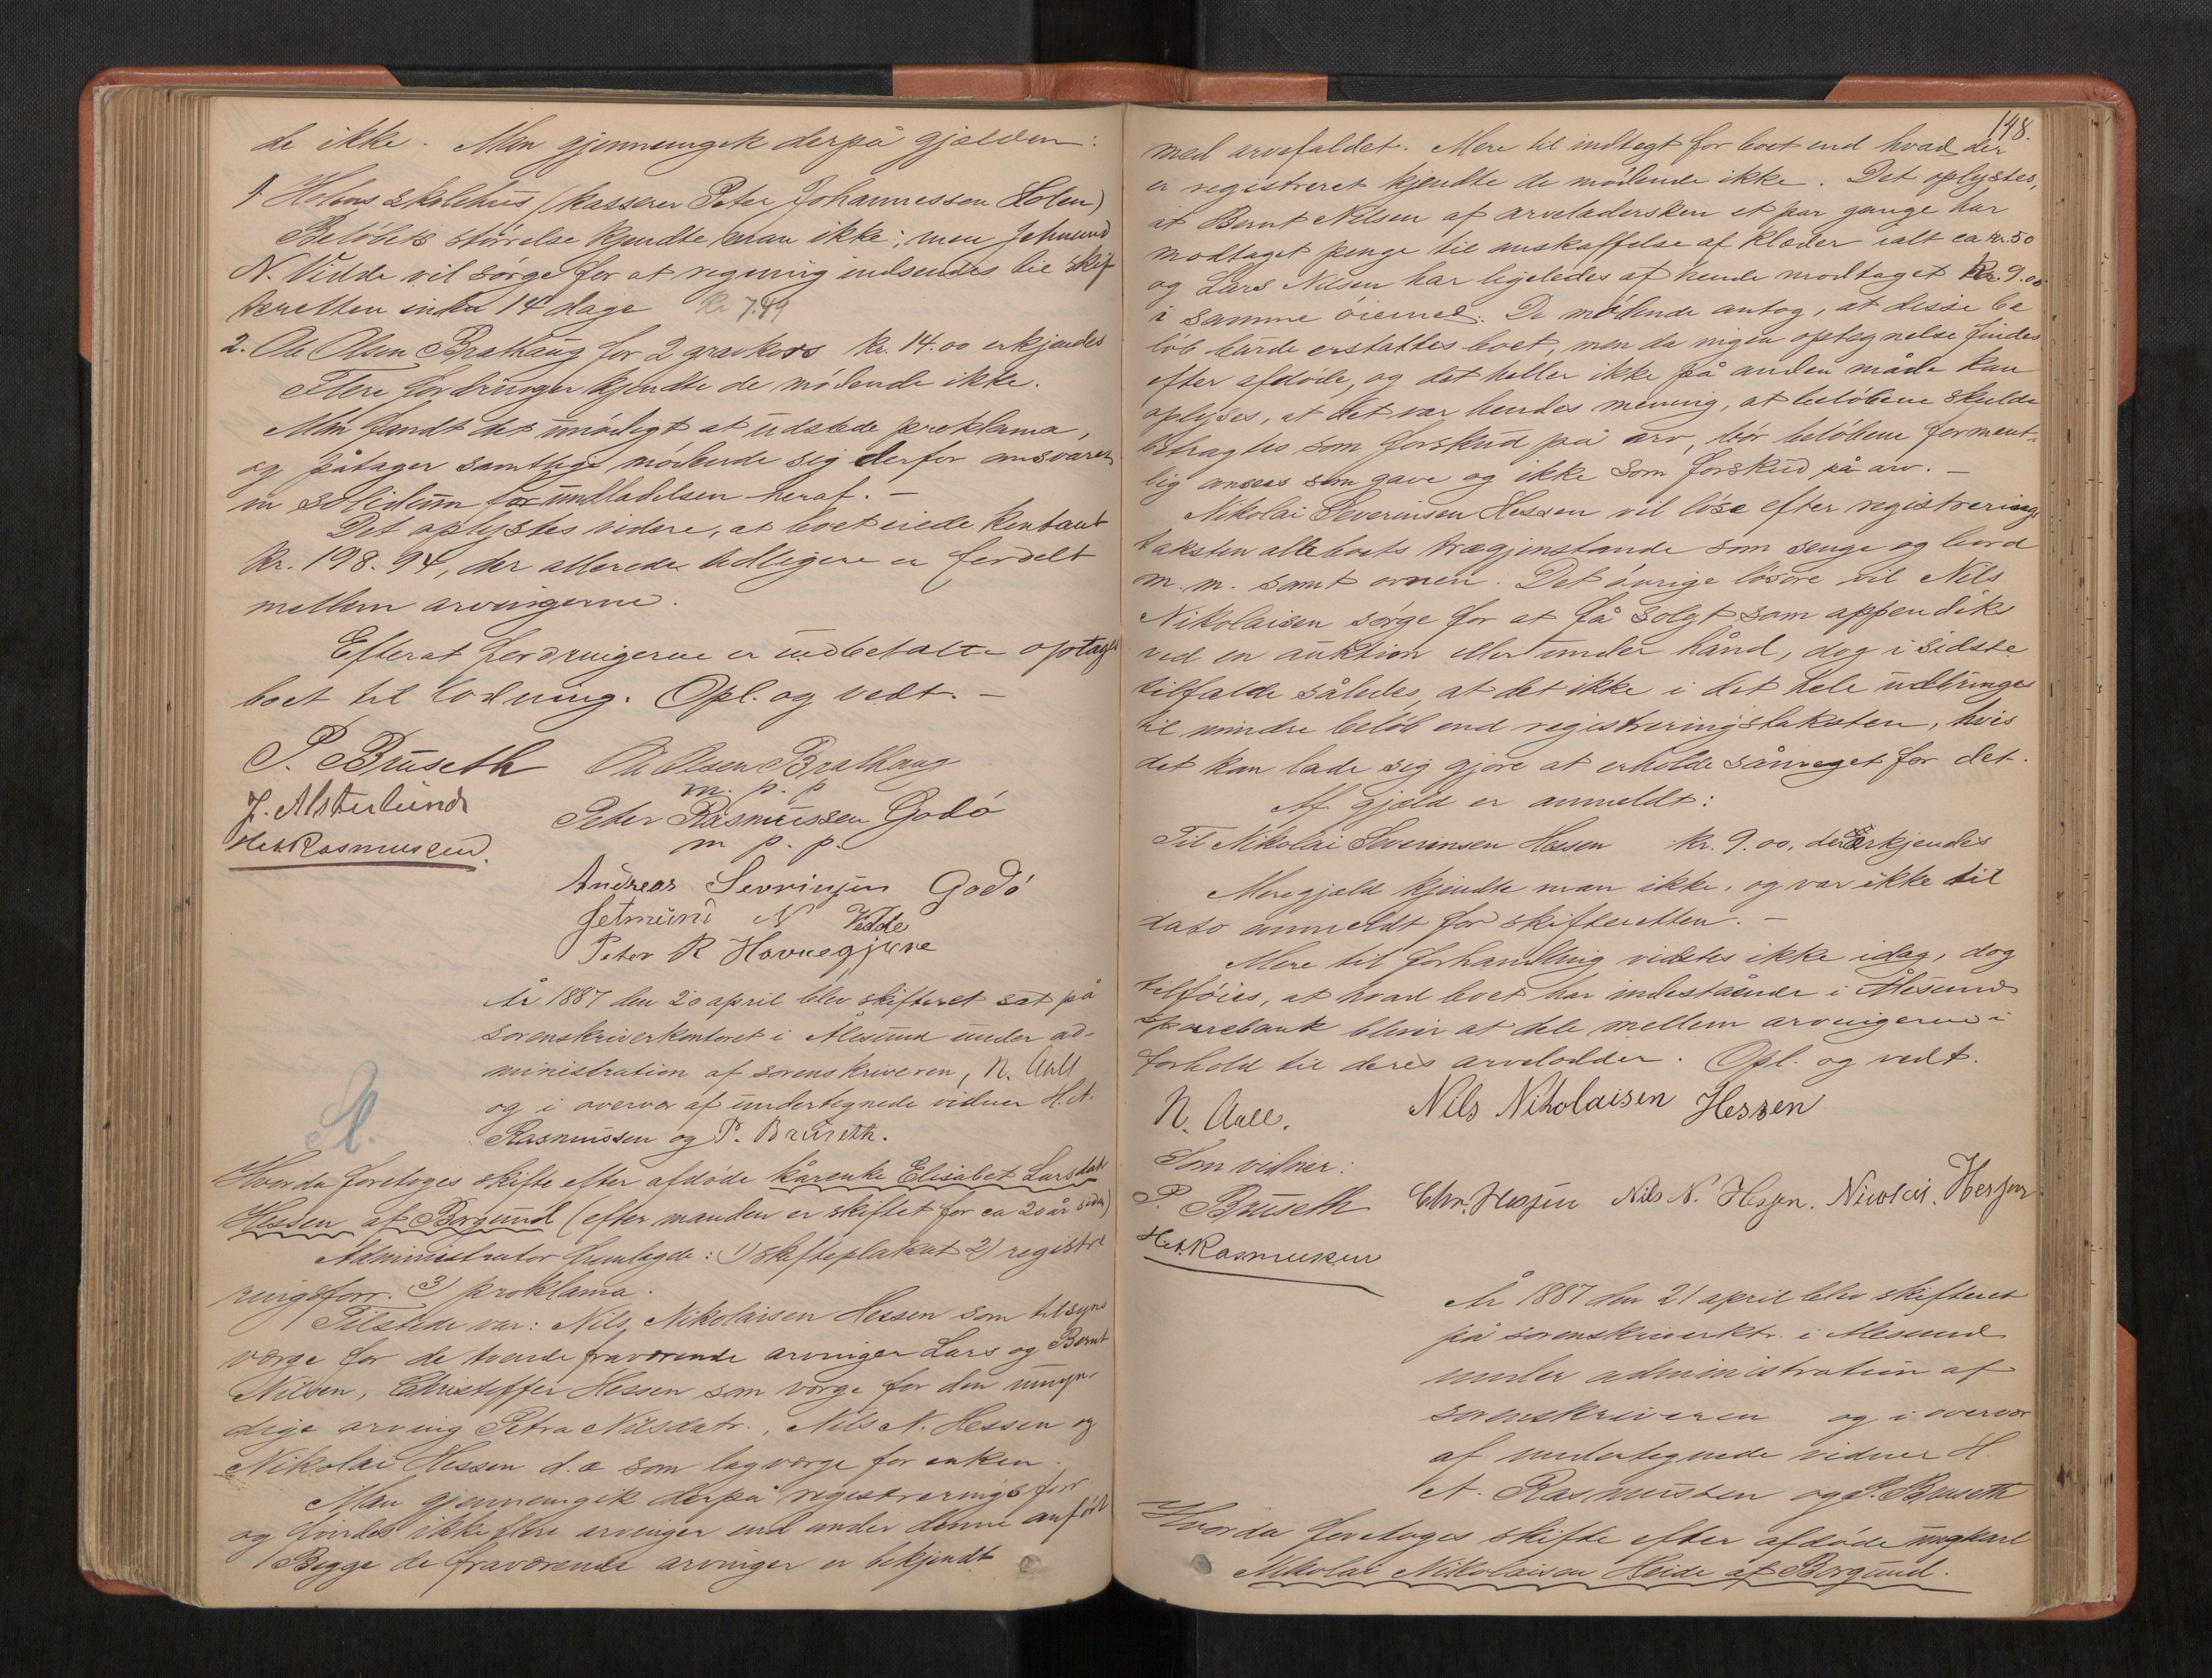 de ikke. Man gjennemgik derpå gjælden:
1. Holens skolehus (kasserer Peter Johannessen Holen)
Beløbets størrelse kjendte man ikke; men Jetmund
N. Vedde vil sørge for at regning indsendes til skif
teretten inden 14 dage kr 7.49
2. Ole Olsen Brathaug for 2 gravkors kr. 14.00 erkjendes
Flere fordringer kjendte de mødende ikke.
Man fandt det unødigt at udstede proklama,
og påtager samtlige mødende sig derfor ansvaret
in solidum for undladelsen heraf. —
Det oplystes videre, at boet eiede kontant
kr. 198.94, der allerede tidligere er fordelt
mellem arvingerne.
Efterat fordringerne er indbetalte optages
boet til lodning. Opl. og vedt. —
P. Bruseth Ole Olsen Brathaug
m. p. p
J. Alsterlund Peter Rasmussen Godø
H.A. Rasmussen. m p. p.
Andreas Sevrinsen Godø
Jetmund N Vedde
Peter R Havnegjerde
År 1887 den 20 april blev skifteret sat på
sorenskriverkontoret i Ålesund under ad-
ministration af sorenskriveren, N. Aall
og i overvær af undertegnede vidner H. A.
Rasmussen og P. Bruseth.
Hvorda foretoges skifte efter afdøde kårenke Elisabet Larsdatr
Hessen af Borgund (efter manden er skiftet for ca 20 år siden)
Administrator fremlagde: 1) skifteplakat 2) registre
ringsforr. 3) proklama.
Tilstede var: Nils Nikolaisen Hessen som tilsyns
værge for de tvende fraværende arvinger Lars og Bernt
Nilsen, Christoffer Hessen som værge for den umyn-
dige arving Petra Nilsdatr., Nils N. Hessen og
Nikolai Hessen d.æ som lagværge for enken.
Man gjennemgik derpå registreringsforr
og fandtes ikke flere arvinger end under denne anført
Begge de fraværende arvinger er bekjendt
148.
med arvefaldet. Mere til indtægt for boet end hvad der
er registreret kjendte de mødende ikke. Det oplystes,
at Bernt Nilsen af arveladersken et par gange har
modtaget penge til anskaffelse af klæder ialt ca kr. 50
og Lars Nilsen har ligeledes af hende modtaget kr. 9.00
i samme øiemed. De mødende antog, at disse be
løb burde erstattes boet, men da ingen optegnelse findes
efter afdøde, og det heller ikke på anden måde kan
oplyses, at det var hendes mening, at beløbene skulde
betragtes som forskud på arv, bør beløbene forment-
lig ansees som gave og ikke som forskud på arv. —
Nikolai Severinsen Hessen vil løse efter registrerings
taksten alle boets trægjenstande som senge og bord
m. m. samt ovnen. Det øvrige løsøre vil Nils
Nikolaisen sørge for at få solgt som appendiks
ved en auktion eller under hånd, dog i sidste
tilfælde således, at det ikke i det hele udbringes
til mindre beløb end registreringstaksten, hvis
det kan lade sig gjøre at erholde såmeget for det.
Af gjæld er anmeldt:
Til Nikolai Severinsen Hessen kr. 9.00, der erkjendes
Mere gjæld kjendte man ikke, og var ikke til
dato anmeldt for skifteretten. —
Mere til forhandling vidstes ikke idag, dog
tilføies, at hvad boet har indestående i Ålesunds
sparebank bliver at dele mellem arvingerne i
forhold til deres arvelodder. Opl. og vedt.
N. Aall. Nils Nikolaisen Hessen
Som vidner:
P. Bruseth Chr. Hessen Nils N. Hessen. Nicolai. Hessen
H.A. Rasmussen
År 1887 den 21 april blev skifteret
på sorenskriverktr. i Ålesund
under administration af
sorenskriveren og i overvær
af undertegnede vidner H.
A. Rasmussen og P. Bruseth
Hvorda foretoges skifte efter afdøde ungkarl
Nikolai Nikolaisen Heide af Borgund.